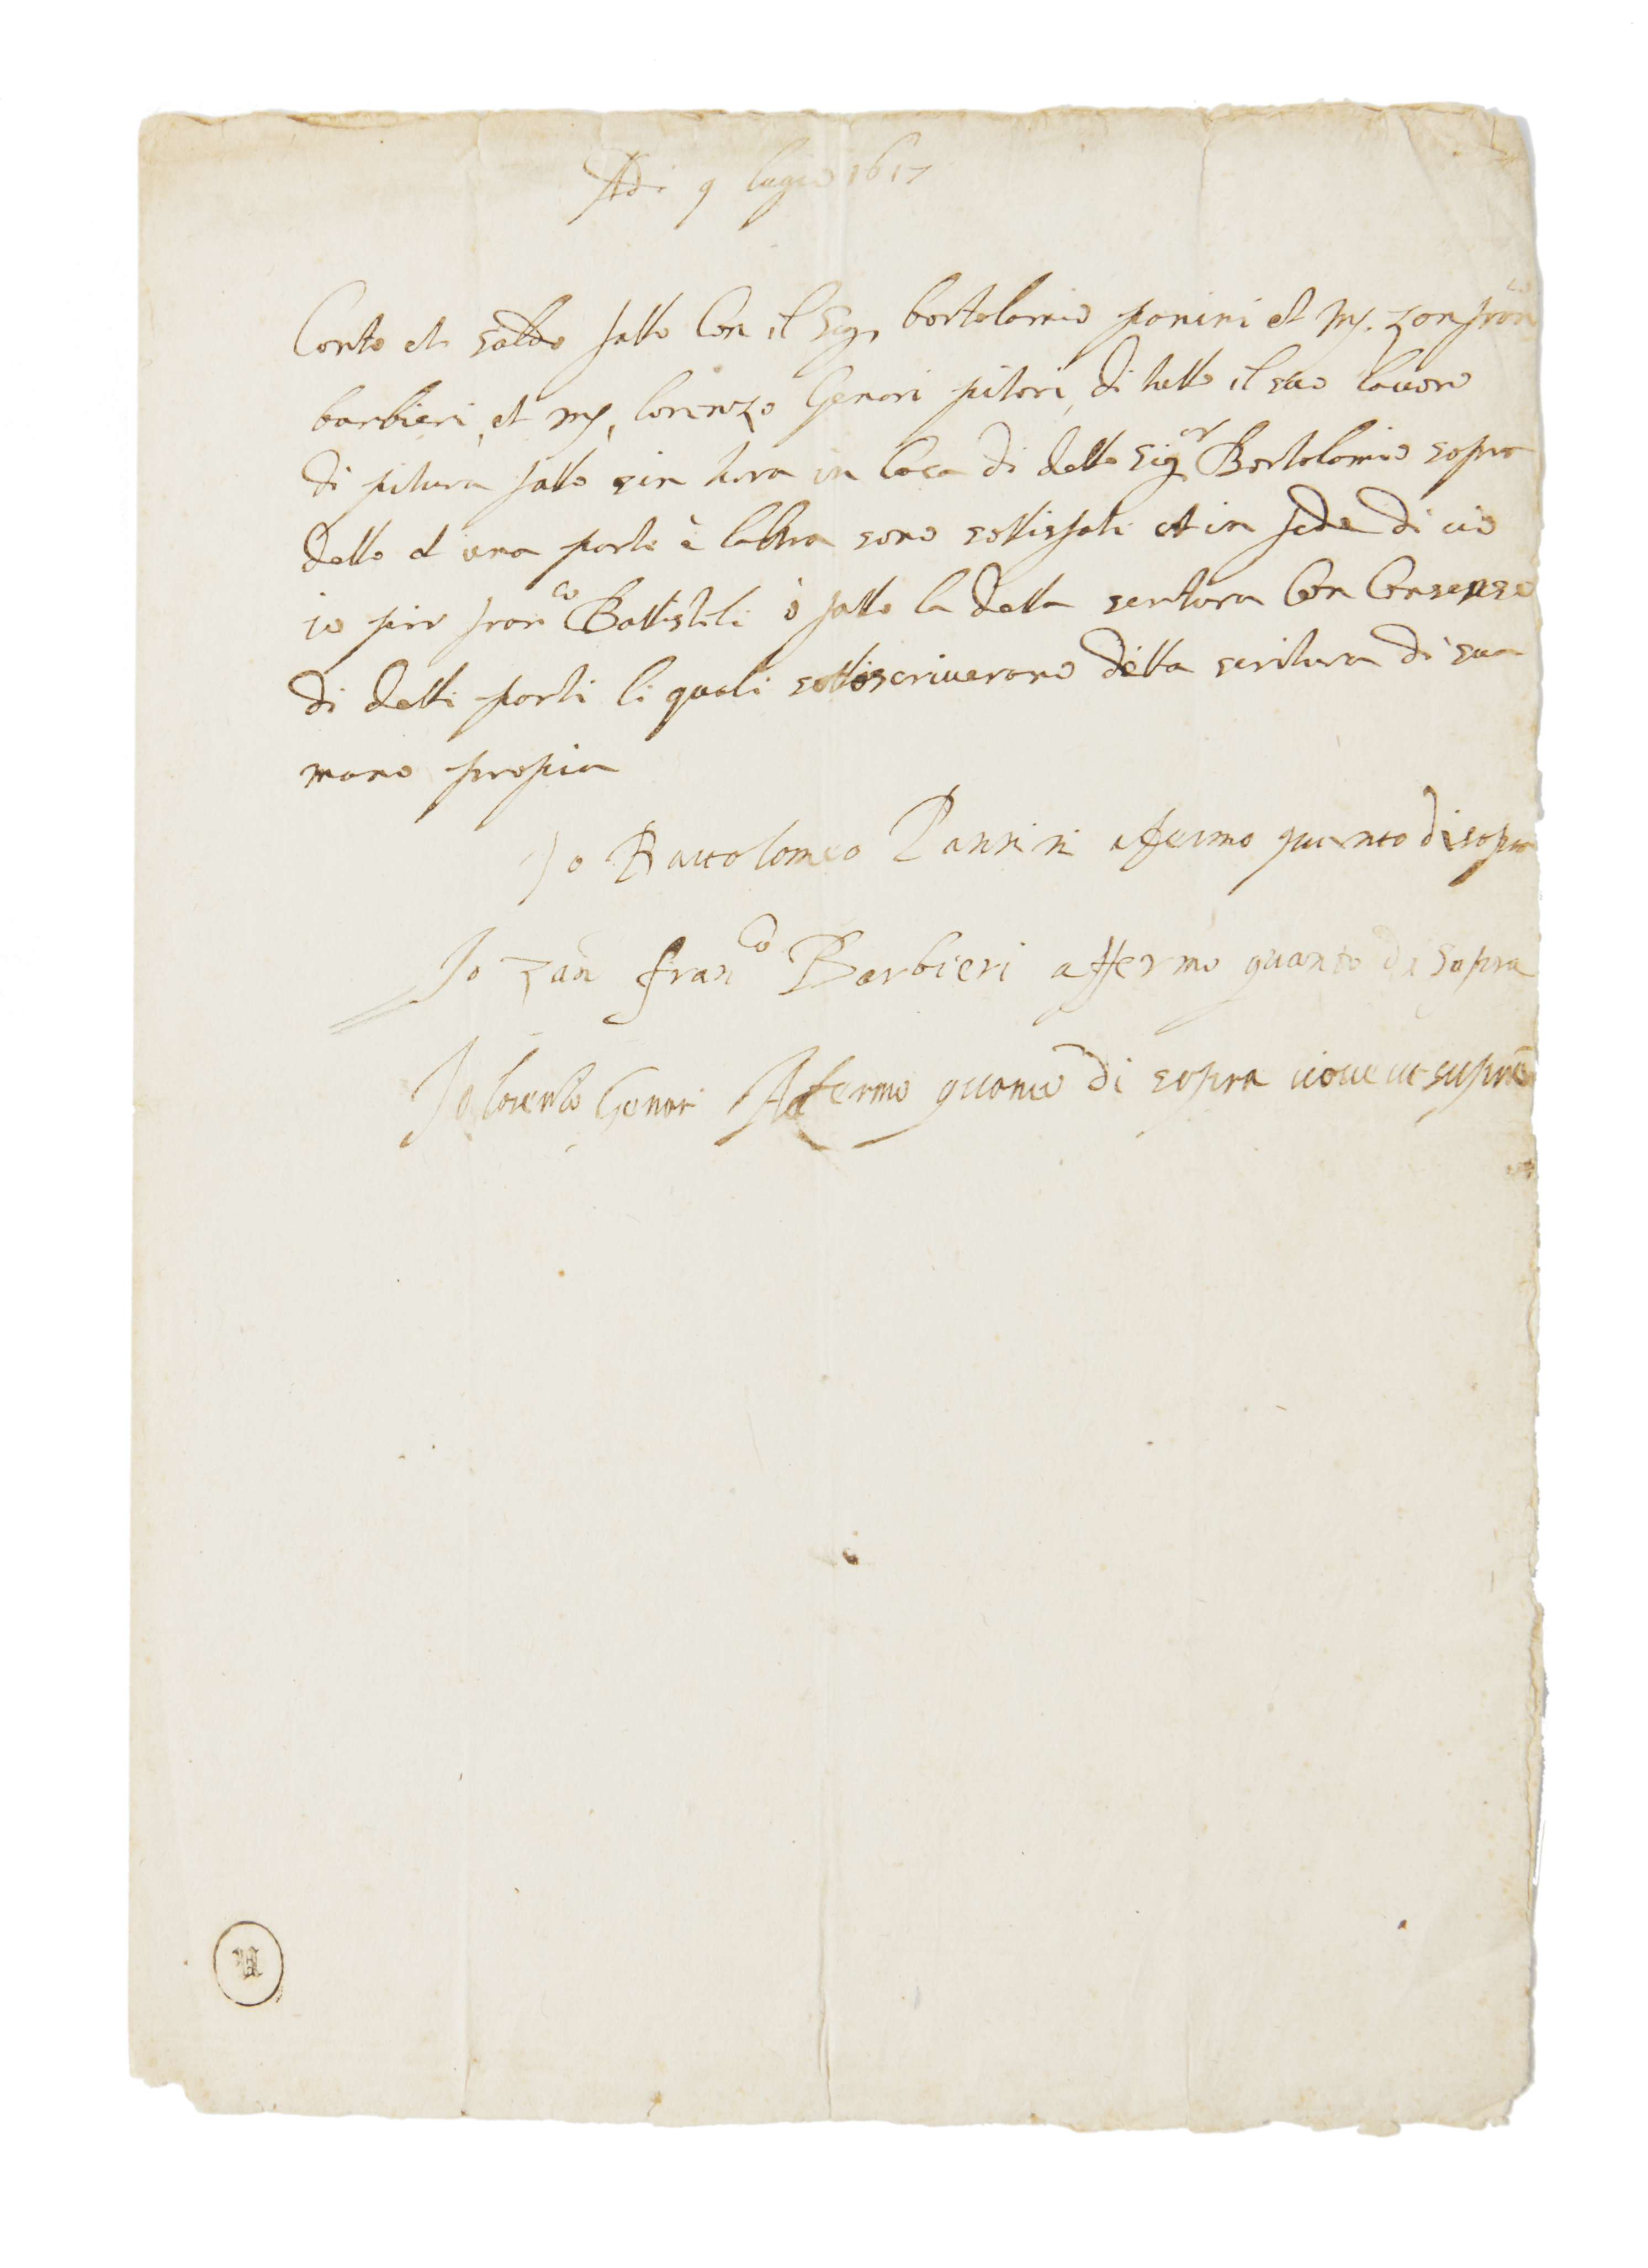 Adi 9 lugio 1617
Conto et saldo fatto Con il Sig. bortolamio panini et mr. zan franco
barbieri, et mr, lorenzo Genari pitori, di tutto il suo lauoro
di pitura fatto sin hora in Casa di detto Sigor Bortolamio sopra
detto et una parte è laltra sono sottisfati et in fede di ciò
io pir franco Battisteli ò fatto la detta scritura Con Consenso
di detti parti li quali sottoscriuerano detta scritura di sua
mano propia
Io Bartolomeo Pannini affermo quanto di sopra
Io zan franco Barbieri affermo quanto di sopra
Io lorenzo Genari Afermo quanto di sopra ut supra